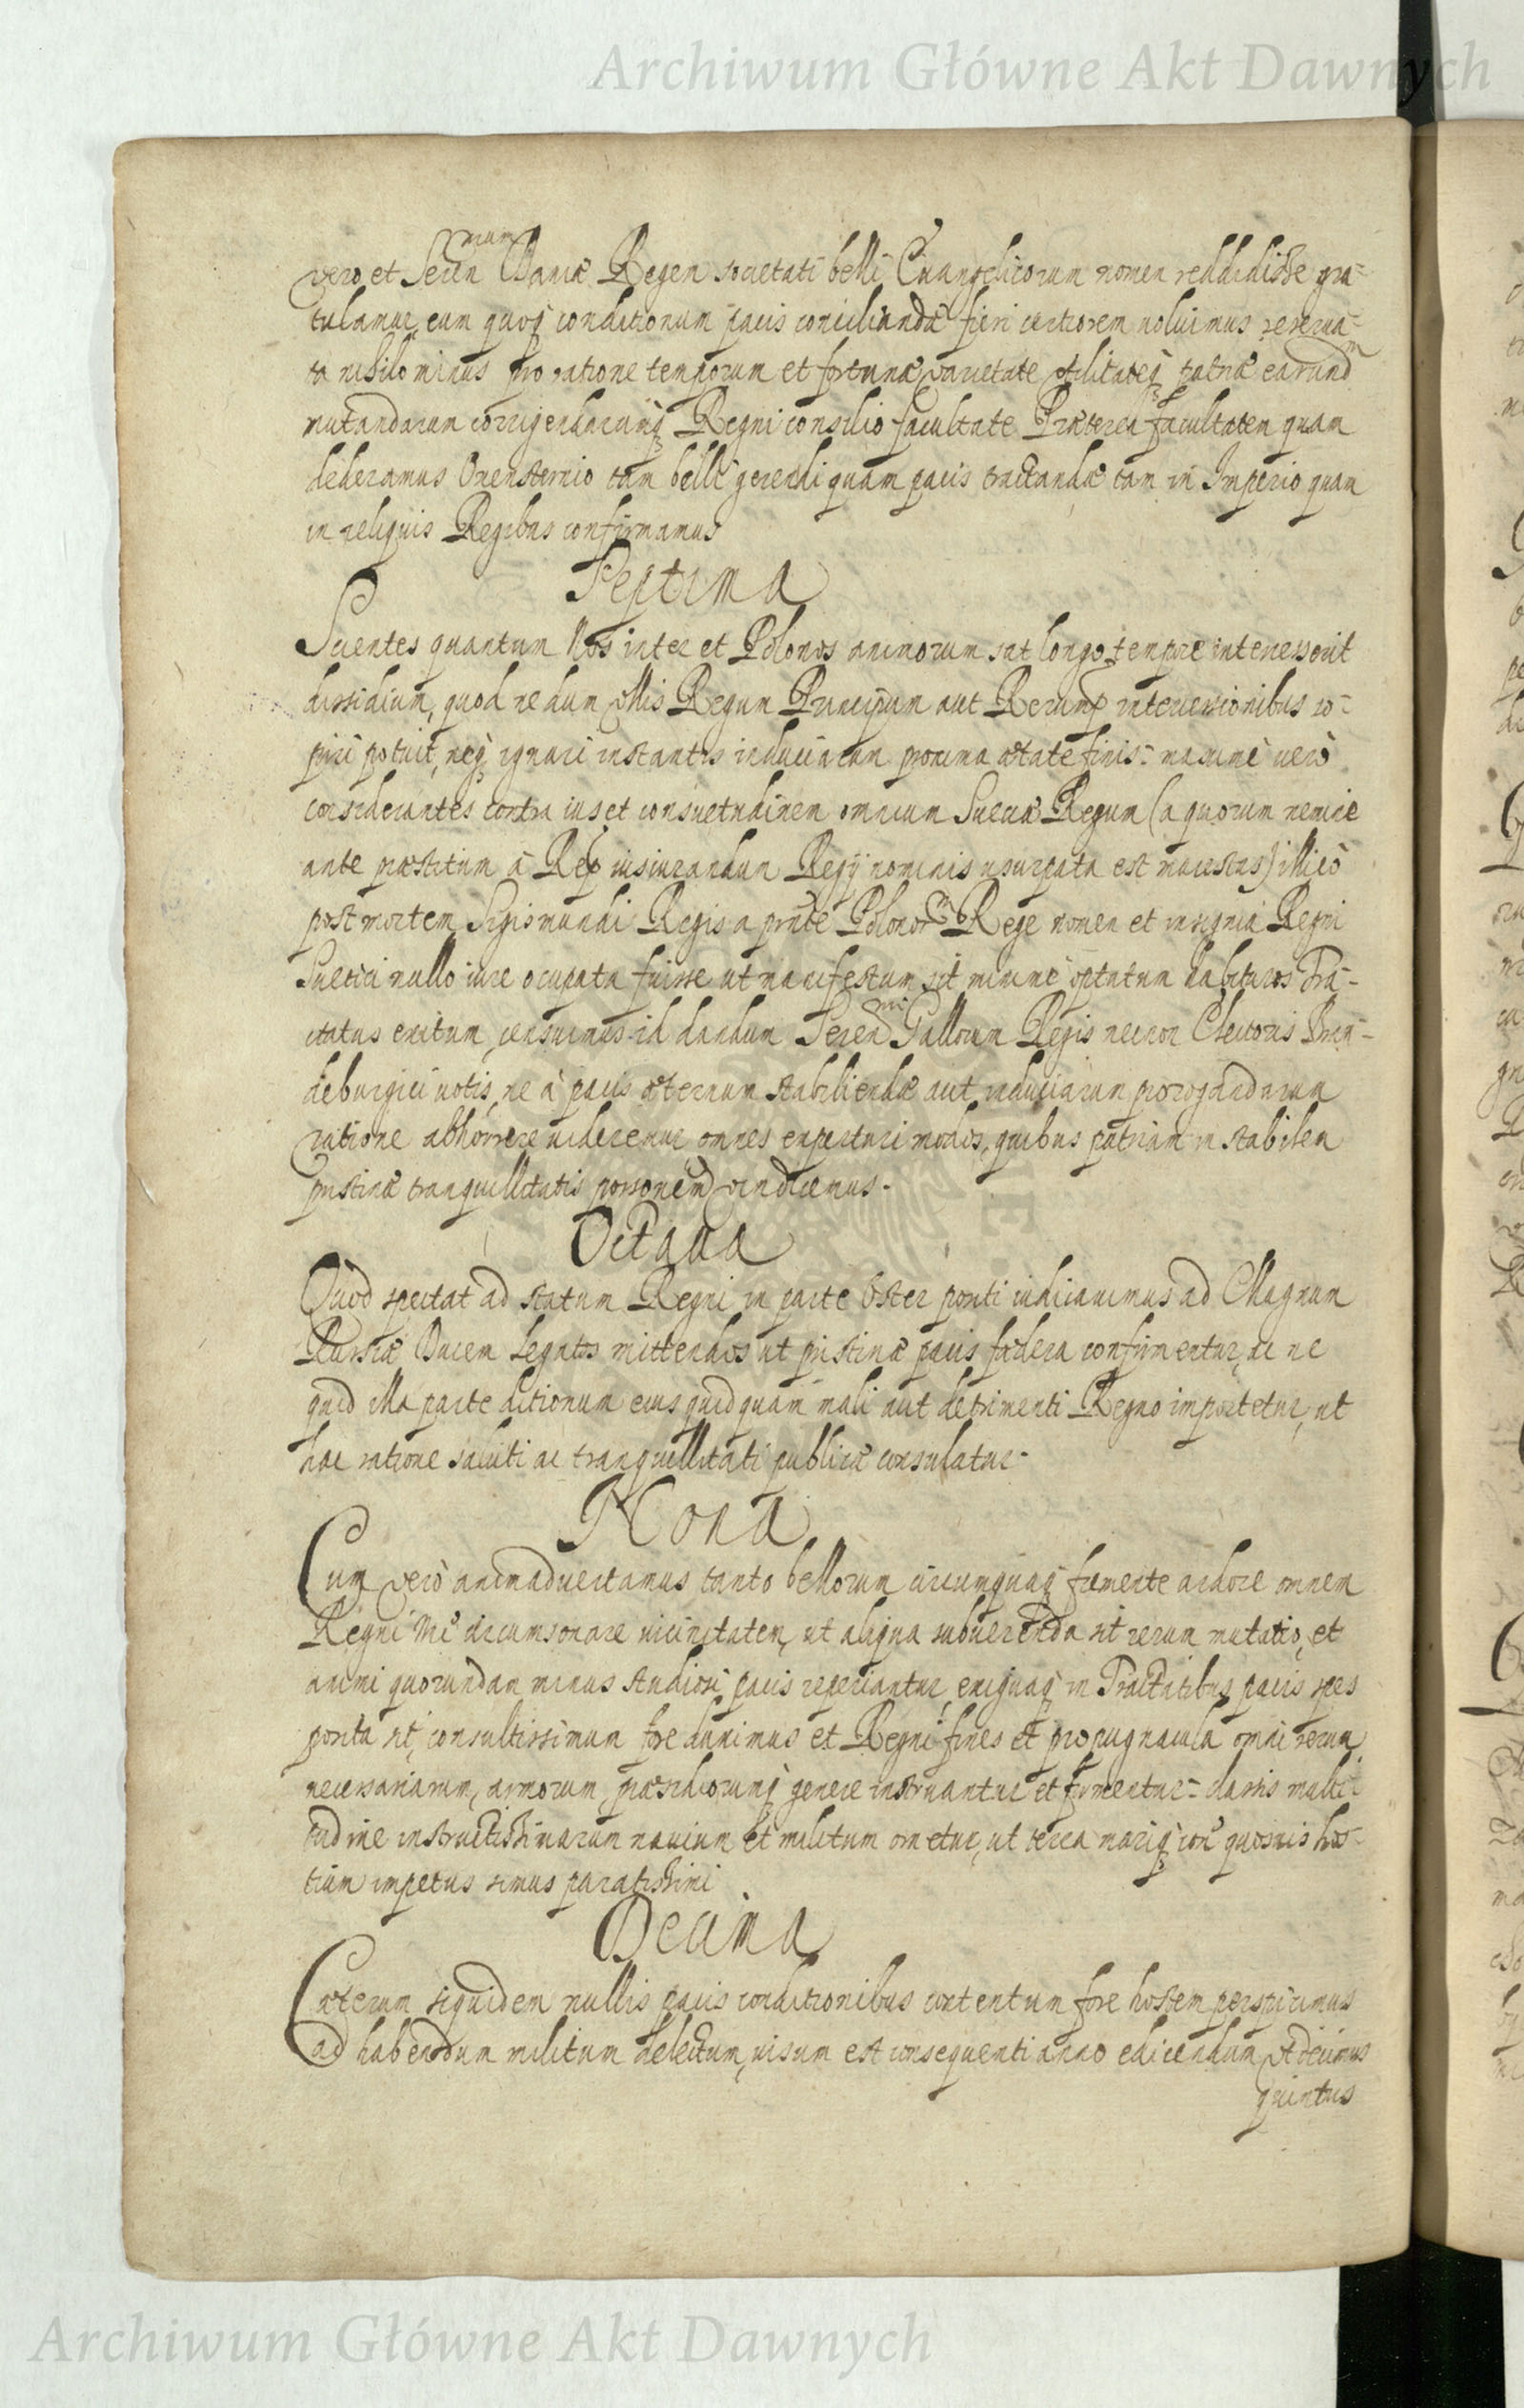 Archiwum Główne Akt Dawnych
vero et Seren mum Daniæ Regem societati belli Euangelicorum nomen reddidisse gra-
tulamur, eum quoq conditionum pacis conciliandæ fieri certiorem uoluimus reserua-
ta nihilo minus pro ratione temporum et fortunæ varietate vtilitateq patriæ earund m
mutandarum corrigendarumq Regni consilio facultate Præterea facultatem quam
dederamus Oxenstirnio tam belli gerendi quam pacis tractandæ tam in Imperio quam
in reliquis Regibus confirmamus
Septima
Scientes quantum Nos inter et Polonos animorum sat longo tempore intercesserit
dissidium, quod nedum vllis Regum Principum aut Rerump interuentionibus so-
piri potuit, neq ignari instantis induciarum proxima æstate finis: maximè uerò
considerantes contra ius et consuetudinem omnium Sueciæ Regum (a quorum nemine
ante præstitum à Rep iusiurandum Regij nominis usurpata est maiestas) illicò
post mortem Sigismundi Regis a pnte Polonor m Rege nomen et insignia Regni
Suetici nullo iure ocupata fuisse ut manifestum sit minimè optatum habituros Tra-
ctatus exitum, censuimus id dandum Seren mi Gallorum Regis necnon Electoris Bran-
deburgici uotis, ne à pacis æternum stabiliendæ aut induciarum prorogandarum
ratione abhorrere uideremur omnes experturi modos, quibus patriam in stabilem
pristinæ tranquillitatis possonem vindicemus.
Octaua
Quod spectat ad statum Regni in parte Oster ponti iudicauimus ad Magnum
Russiæ Ducem Legatos mittendos ut pristinæ pacis fædera confirmentur, ac ne
quid illa parte ditionum eius quidquam mali aut detrimenti Regno importetur, ut
hac ratione saluti ac tranquillitati publicæ consulatur.
Nona
Cum verò animaduertamus tanto bellorum circumquaq fremente ardore omnem
Regni Nri circumsonare uicinitatem, ut aliqua subuerenda sit rerum mutatio, et
animi quorundam minus studiosi pacis reperiantur, exiguaq in Tractatibus pacis spes
posita sit, consultissimum fore duximus et Regni fines et propugnacula omni rerum
necessariarum, armorum, præsidiorumq genere instruantur et firmentur: classis multi-
tudine instructissimarum nauium et militum ornetur, ut terra mariq con quosuis hos-
tium impetus simus paratissimi
Decima
Cæterum siquidem nullis pacis conditionibus contentum fore hostem perspicimus
ad habendum militum delectum, uisum est consequenti anno edicendum vt decimus
quintus
Archiwum Główne Akt Dawnych